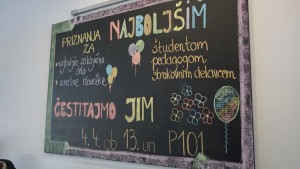 PRIZNANJA
ZA
NAJBOLJŠIM
študentom
pedagogom
strokovnim delavcem
dela
ČESTITAJMO JIM
4. 4. ob 13. uri P101